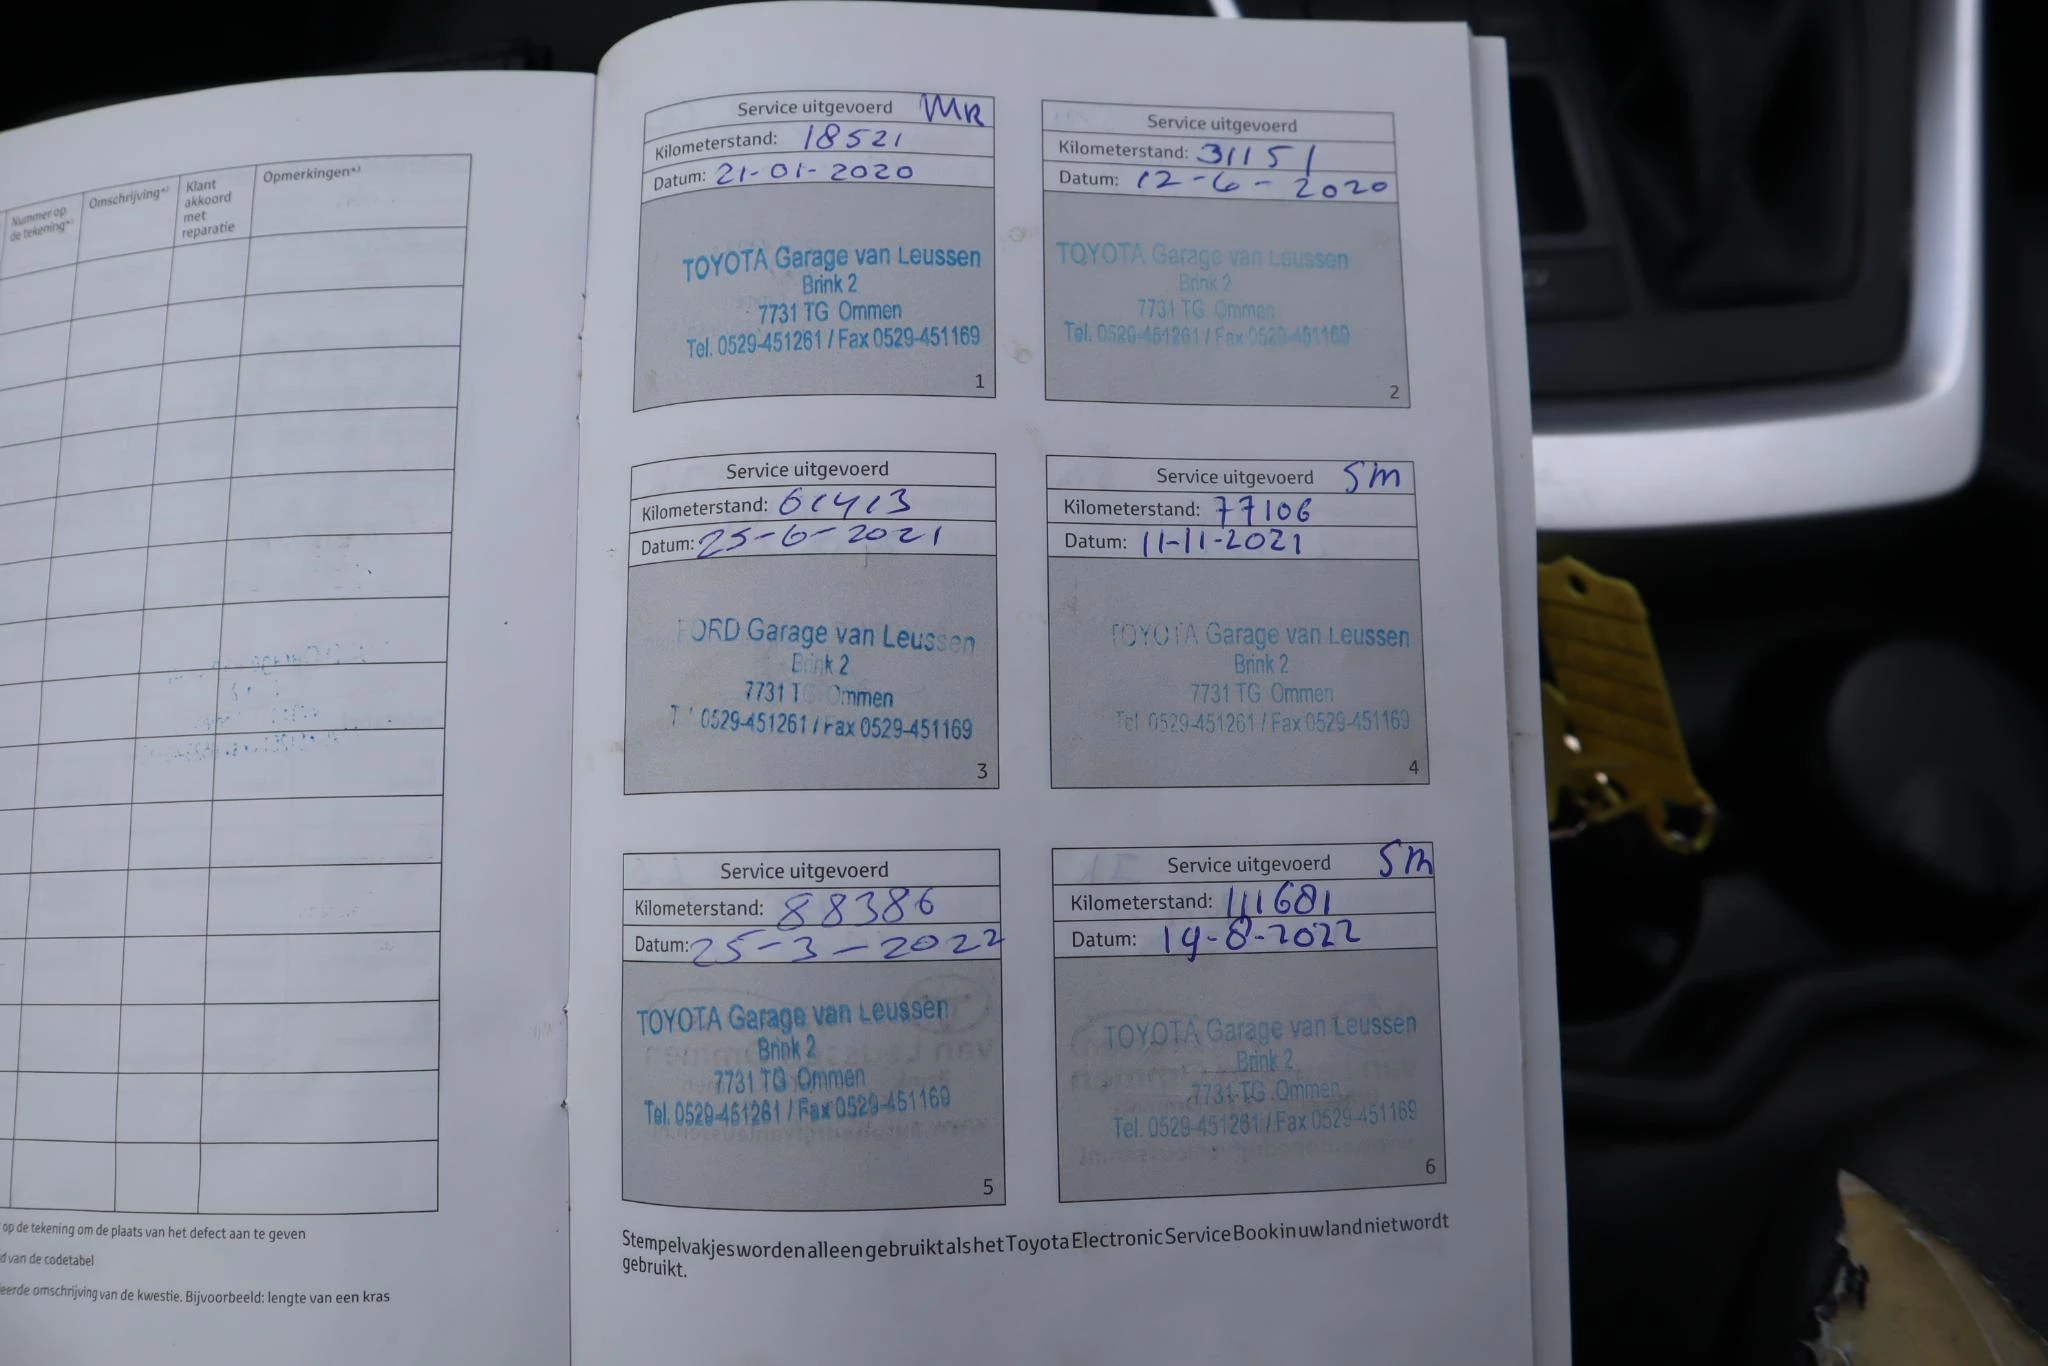 Nummer op
de tekening*²
Omschrijving*²
Klant
akkoord
met
reparatie
Opmerkingen*³
op de tekening om de plaats van het defect aan te geven
d van de codetabel
eerde omschrijving van de kwestie. Bijvoorbeeld: lengte van een kras
Service uitgevoerd MR
Kilometerstand: 18521
Datum: 21-01-2020
TOYOTA Garage van Leussen
Brink 2
7731 TG Ommen
Tel. 0529-451261 / Fax 0529-451169
1
Service uitgevoerd
Kilometerstand: 31151
Datum: 12-6-2020
TOYOTA Garage van Leussen
Brink 2
7731 TG Ommen
Tel. 0529-451261 / Fax 0529-451169
2
Service uitgevoerd
Kilometerstand: 61413
Datum: 25-6-2021
FORD Garage van Leussen
Brink 2
7731 TG Ommen
0529-451261 / Fax 0529-451169
3
Service uitgevoerd Sm
Kilometerstand: 77106
Datum: 11-11-2021
TOYOTA Garage van Leussen
Brink 2
7731 TG Ommen
Tel 0529-451261 / Fax 0529-451169
4
Service uitgevoerd
Kilometerstand: 88386
Datum: 25-3-2022
TOYOTA Garage van Leussen
Brink 2
7731 TG Ommen
Tel. 0529-451261 / Fax 0529-451169
5
Service uitgevoerd Sm
Kilometerstand: 111681
Datum: 19-8-2022
TOYOTA Garage van Leussen
Brink 2
7731 TG Ommen
Tel. 0529-451261 / Fax 0529-451169
6
Stempelvakjes worden alleen gebruikt als het Toyota Electronic Service Book in uw land niet wordt
gebruikt.